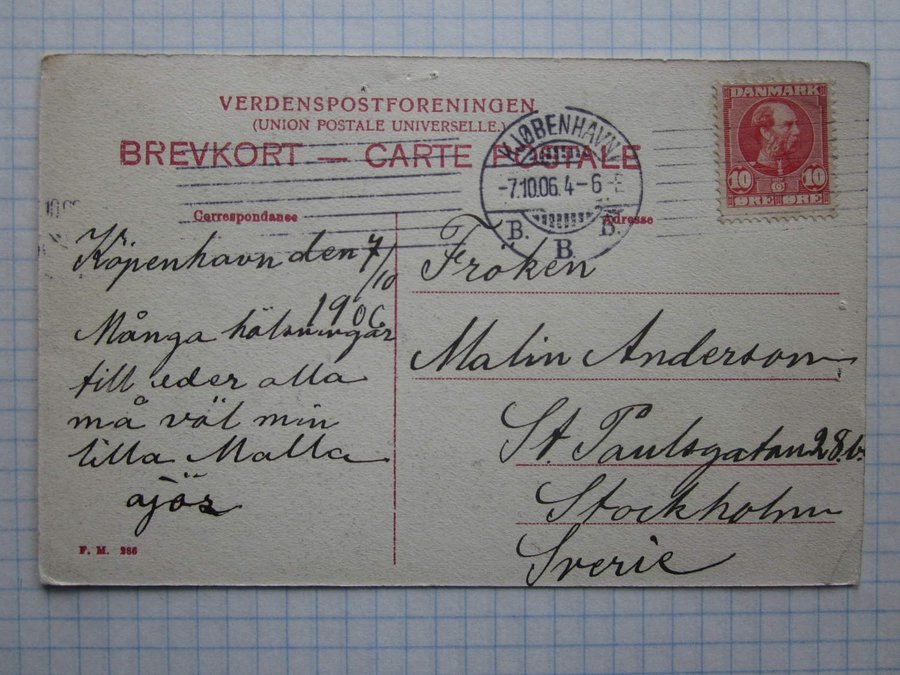 VERDENSPOSTFORENINGEN
(UNION POSTALE UNIVERSELLE.)
BREVKORT — CARTE POSTALE
DANMARK
10 10
ØRE ØRE
KJØBENHAVN
-7.10.06. 4-6 E
B. B. B.
Correspondance
Adresse
Köpenhavn den 7/10
1906
Många hälsningar
till eder alla
må väl min
lilla Malla
ajös
Fröken
Malin Anderson
St. Paulsgatan 28 b.
Stockholm
Sverie
F. M. 286